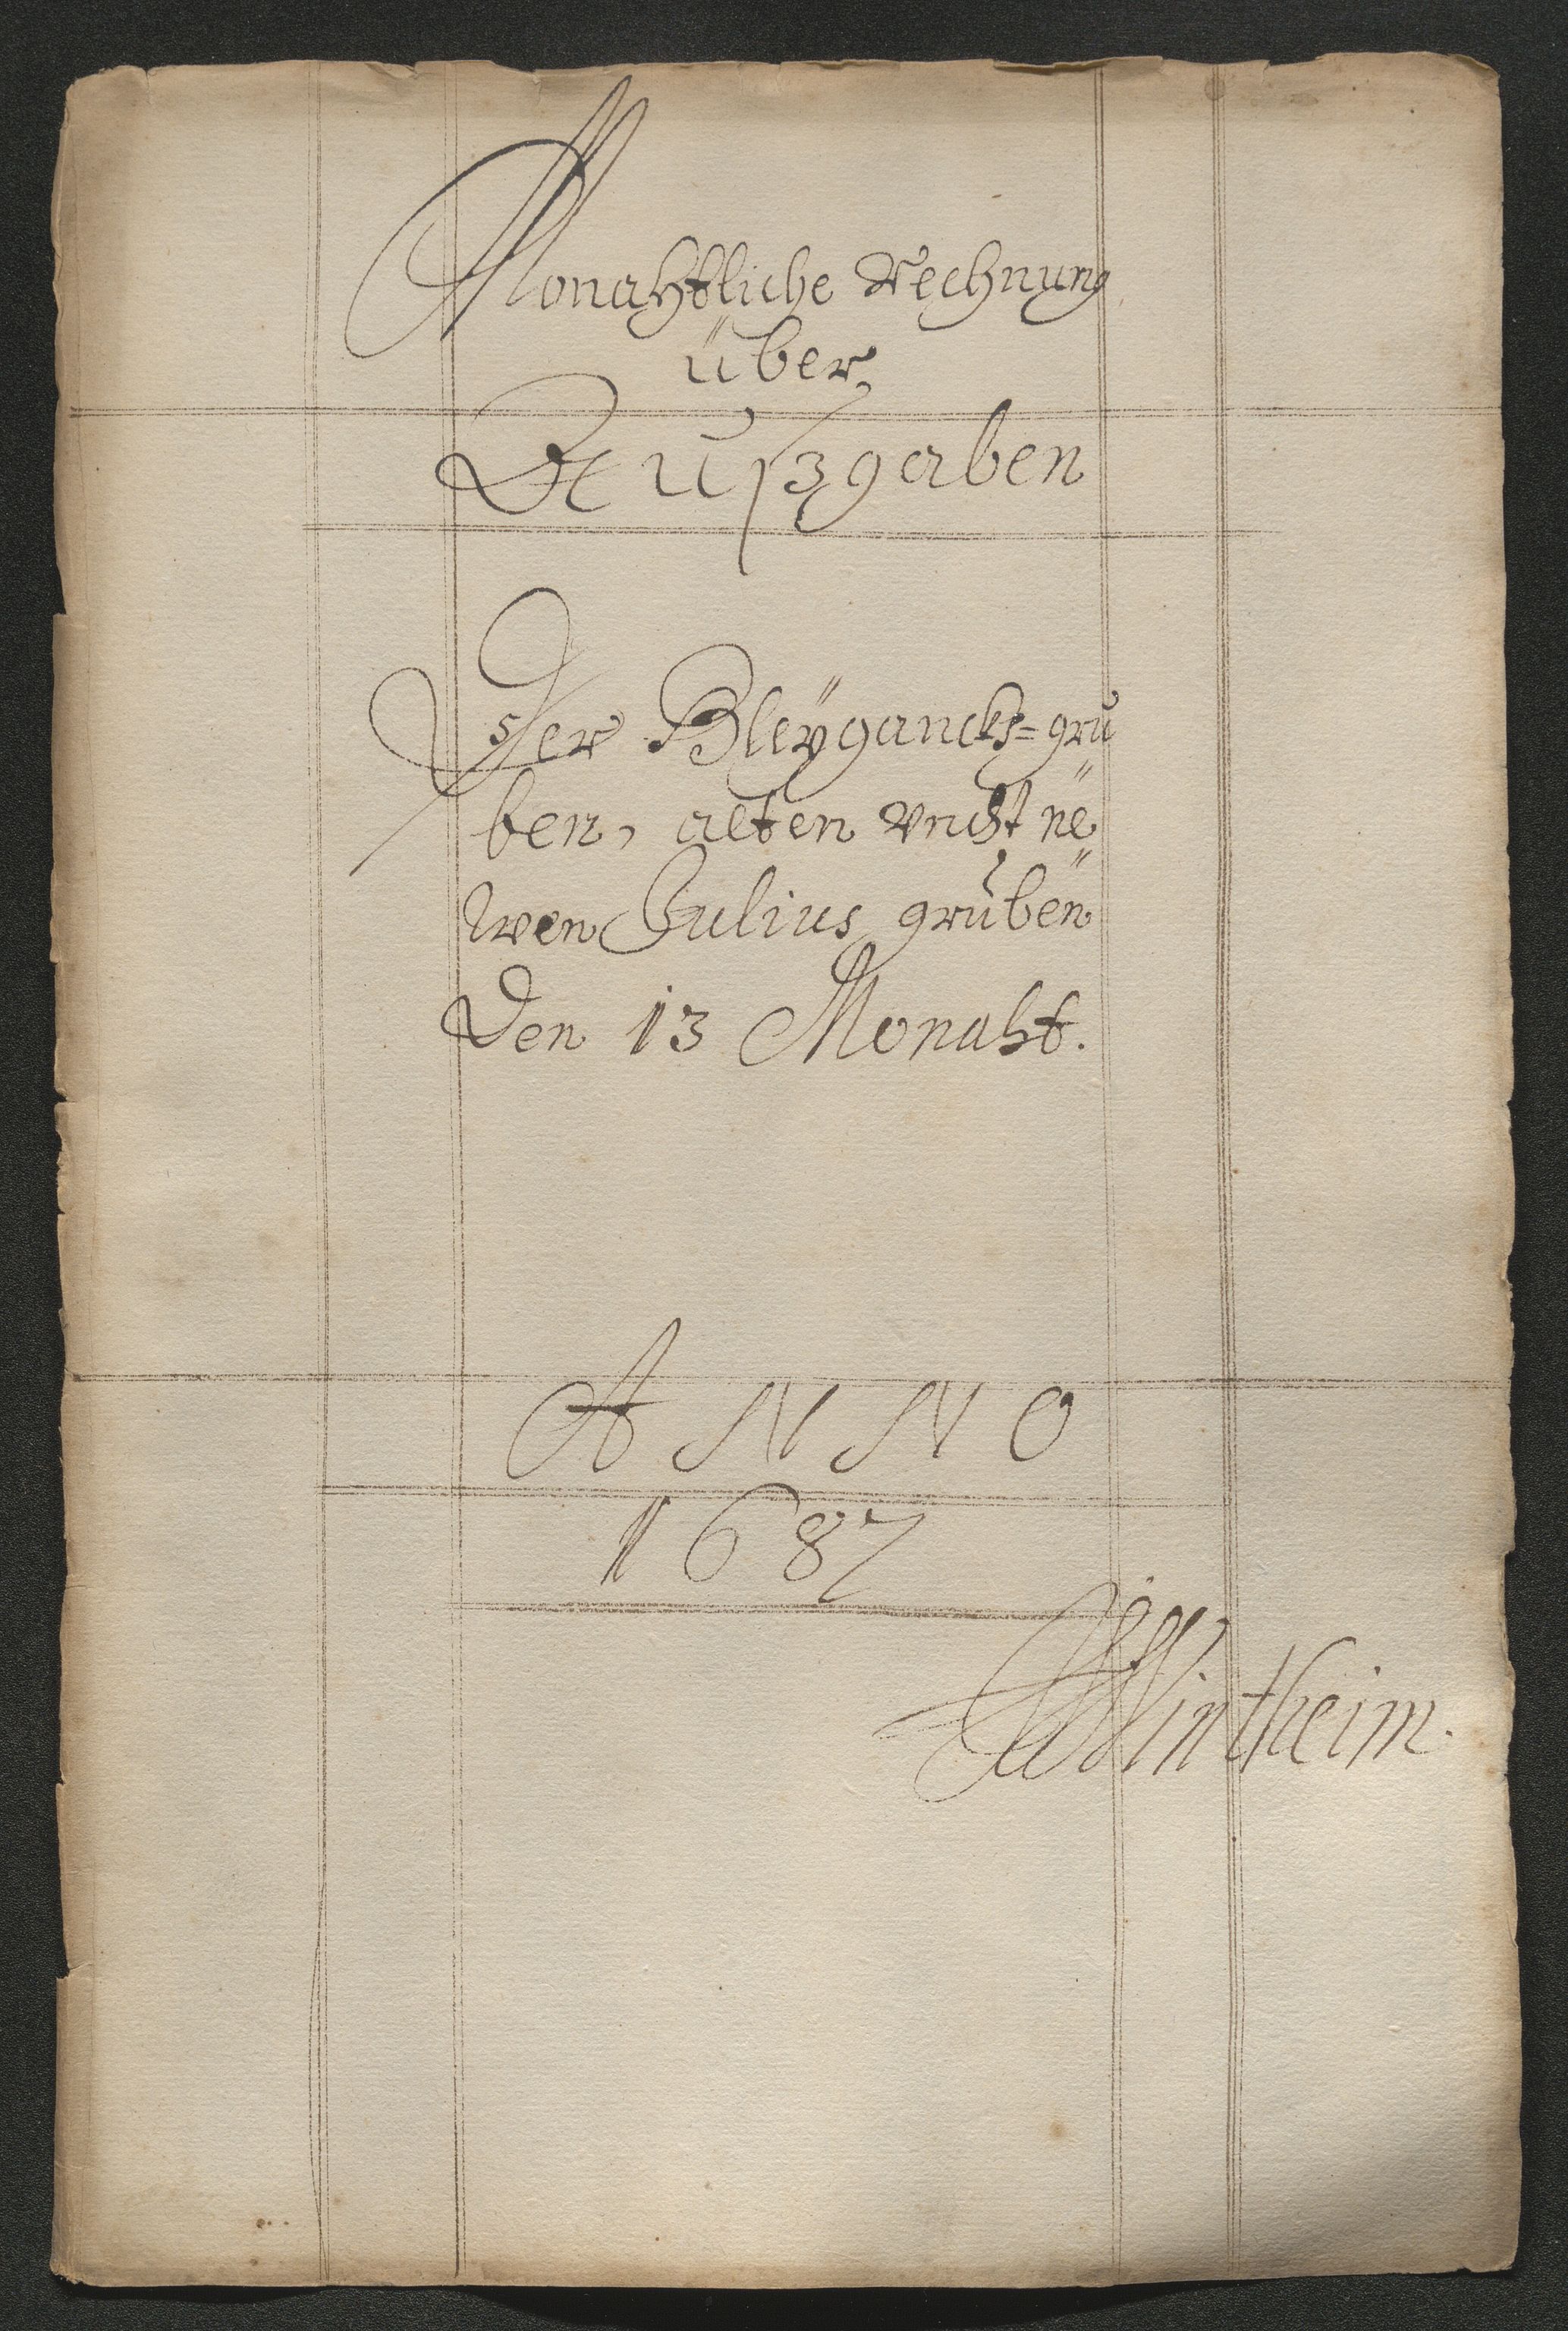 Monahtliche Rechnung
über
Außgaben
Der Bleÿgancks=gru
ben, alten vndt ne
wen Julius gruben
Den 13 Monaht.
ANNO
1687
Wintheim.